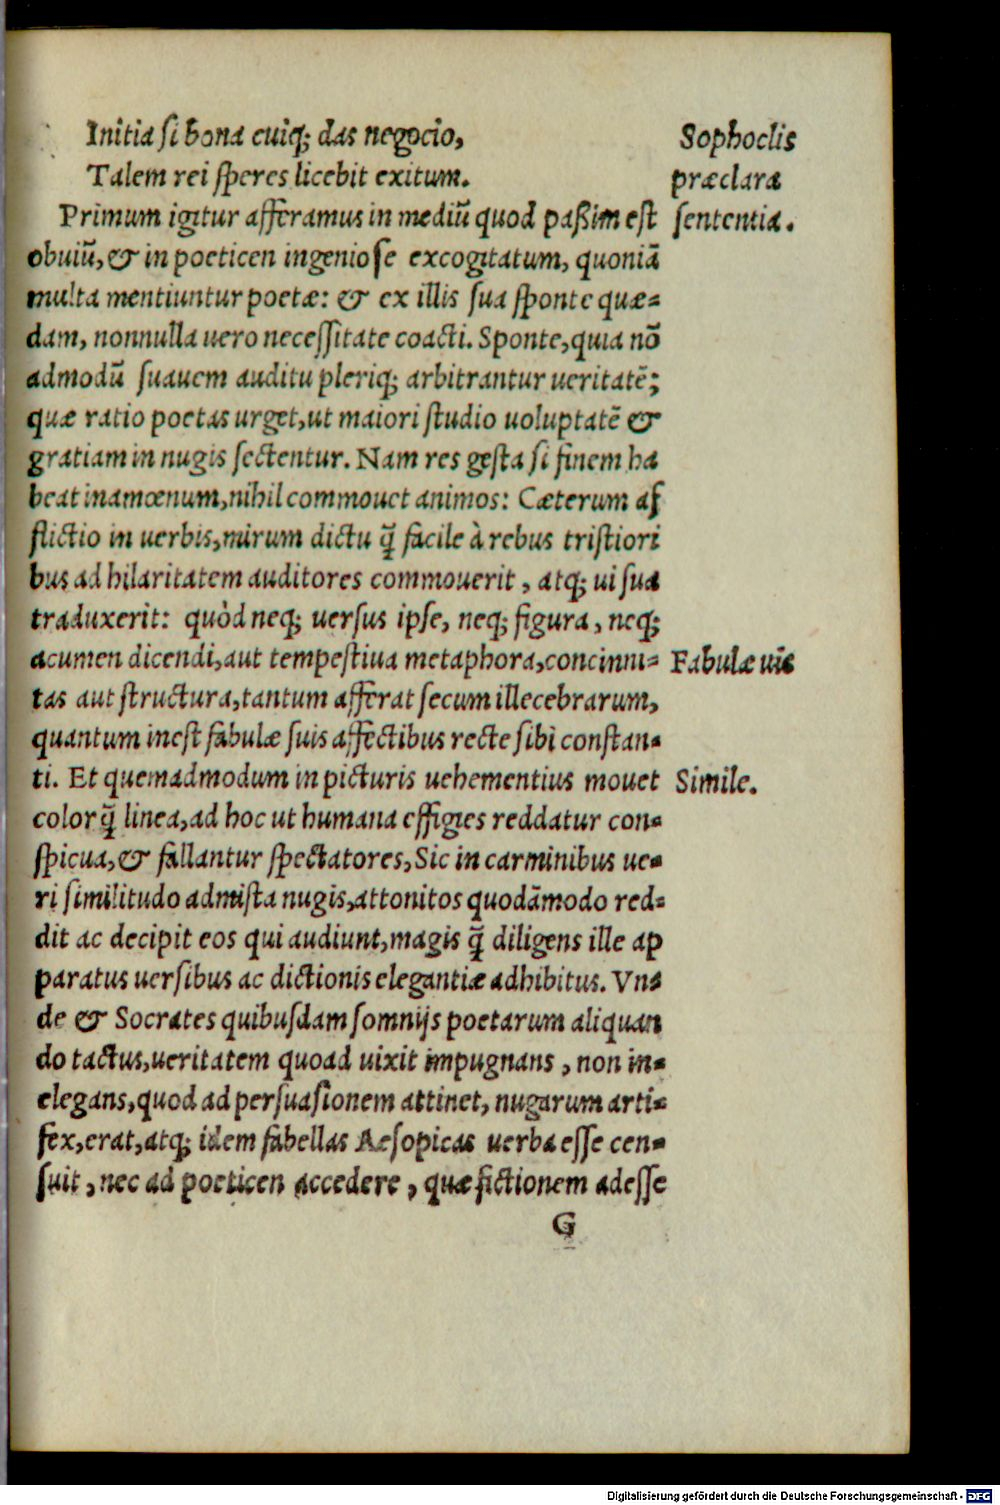 Initia si bona cuiq; das negocio,
Talem rei speres licebit exitum.
Sophoclis
præclara
sententia.
Primum igitur afferamus in mediũ quod paßim est
obuiũ, & in poeticen ingeniose excogitatum, quoniã
multa mentiuntur poetæ: & ex illis sua sponte quæ-
dam, nonnulla uero necessitate coacti. Sponte, quia nõ
admodũ suauem auditu pleriq; arbitrantur ueritatẽ;
quæ ratio poetas urget, ut maiori studio uoluptatẽ &
gratiam in nugis sectentur. Nam res gesta si finem ha
beat inamœnum, nihil commouet animos: Cæterum af
flictio in uerbis, mirum dictu q̃ facile à rebus tristiori
bus ad hilaritatem auditores commouerit, atq; ui sua
traduxerit: quòd neq; uersus ipse, neq; figura, neq;
acumen dicendi, aut tempestiua metaphora, concinni-
Fabulæ uis
tas aut structura, tantum afferat secum illecebrarum,
quantum inest fabulæ suis affectibus recte sibi constan-
ti. Et quemadmodum in picturis uehementius mouet
Simile.
color q̃ linea, ad hoc ut humana effigies reddatur con-
spicua, & fallantur spectatores, Sic in carminibus ue-
ri similitudo admista nugis, attonitos quodãmodo red-
dit ac decipit eos qui audiunt, magis q̃ diligens ille ap
paratus uersibus ac dictionis elegantiæ adhibitus. Vn-
de & Socrates quibusdam somnijs poetarum aliquan
do tactus, ueritatem quoad uixit impugnans, non in-
elegans, quod ad persuasionem attinet, nugarum arti-
fex, erat, atq; idem fabellas Aesopicas uerba esse cen-
suit, nec ad poeticen accedere, quæ fictionem adesse
G
Digitalisierung gefördert durch die Deutsche Forschungsgemeinschaft - DFG